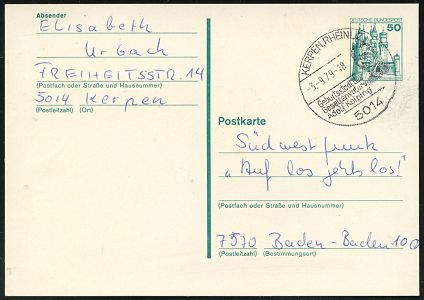 Absender
Elisabeth
Urbach
FREIHEITSSTR. 14
(Postfach oder Straße und Hausnummer)
5014 Kerpen
(Postleitzahl) (Ort)
DEUTSCHE BUNDESPOST
50
KERPEN, RHEINL
-3.-9.79-18
Geburtsstadt des
Gesellenvaters
Adolf Kolping
5014
Postkarte
Südwestfunk
"Auf los geht's los!"
(Postfach oder Straße und Hausnummer)
7570 Baden-Baden 100
(Postleitzahl) (Bestimmungsort)